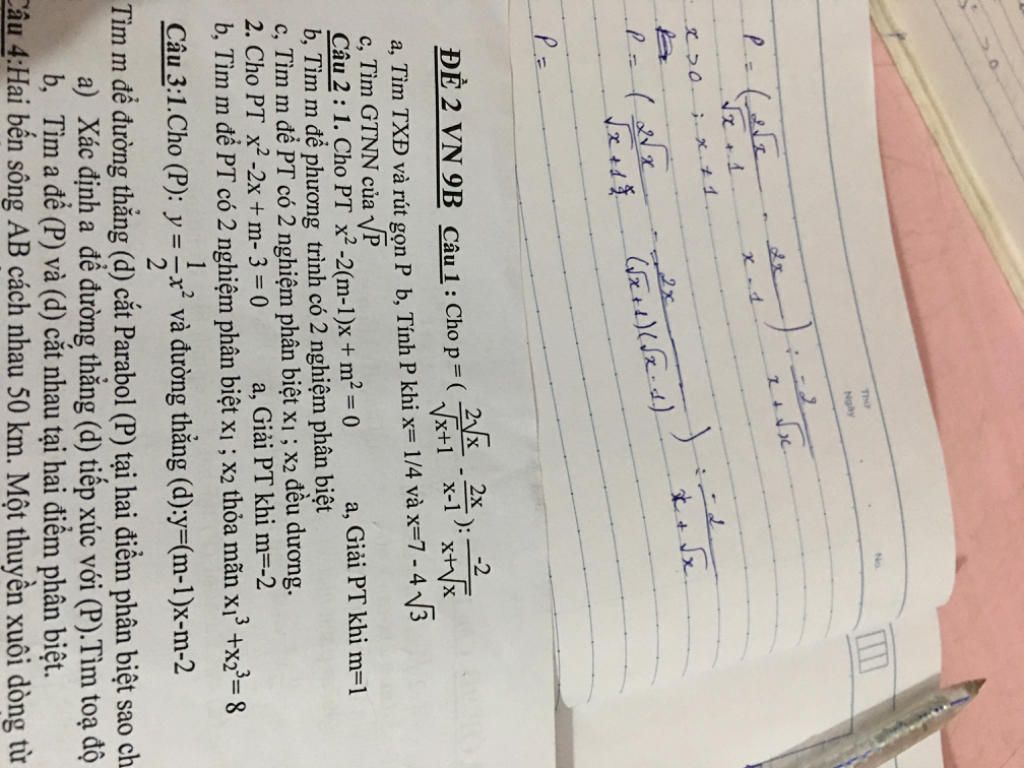 Thứ
Ngày
No.
P = ( 2√x / √x + 1 - 2x / x - 1 ) : -2 / x + √x
x > 0 ; x ≠ 1
P = ( 2√x / √x + 1 - 2x / (√x + 1)(√x - 1) ) : -2 / x + √x
P =
ĐỀ 2 VN 9B Câu 1 : Cho p = ( 2√x / √x+1 - 2x / x-1 ): -2 / x+√x
a, Tìm TXĐ và rút gọn P b, Tính P khi x= 1/4 và x=7 - 4√3
c, Tìm GTNN của √P
Câu 2 : 1. Cho PT x² -2(m-1)x + m² = 0 a, Giải PT khi m=1
b, Tìm m để phương trình có 2 nghiệm phân biệt
c, Tìm m để PT có 2 nghiệm phân biệt x₁ ; x₂ đều dương.
2. Cho PT x² -2x + m- 3 = 0 a, Giải PT khi m=-2
b, Tìm m để PT có 2 nghiệm phân biệt x₁ ; x₂ thỏa mãn x₁³ +x₂³= 8
Câu 3:1.Cho (P): y = 1/2 x² và đường thẳng (d):y=(m-1)x-m-2
Tìm m để đường thẳng (d) cắt Parabol (P) tại hai điểm phân biệt sao ch
a) Xác định a để đường thẳng (d) tiếp xúc với (P).Tìm toạ độ
b, Tìm a để (P) và (d) cắt nhau tại hai điểm phân biệt.
Câu 4:Hai bến sông AB cách nhau 50 km. Một thuyền xuôi dòng từ